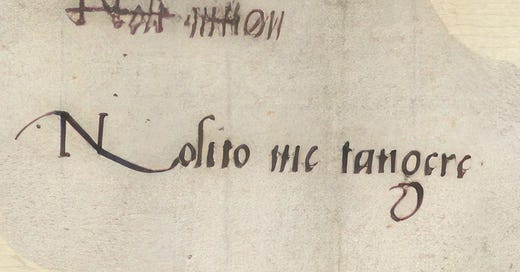 Nolito me tangere